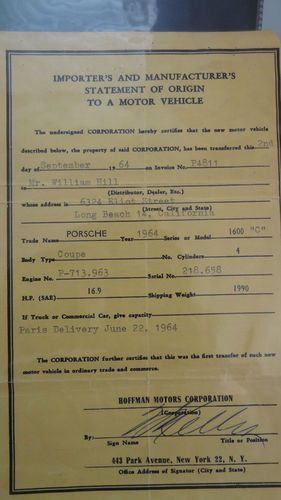 IMPORTER'S AND MANUFACTURER'S
STATEMENT OF ORIGIN
TO A MOTOR VEHICLE
The undersigned CORPORATION hereby certifies that the new motor vehicle
described below, the property of said CORPORATION, has been transferred this 2nd
day of September 1964 on Invoice No. P4811
to Mr. William Hill
(Distributor, Dealer, Etc.)
whose address is 6324 Eliot Street
(Street, City and State)
Long Beach 14, California
Trade Name PORSCHE Year 1964 Series or Model 1600 "C"
Body Type Coupe No. Cylinders 4
Engine No. P-713.963 Serial No. 218.658
H.P. (SAE) 16.9 Shipping Weight 1990
If Truck or Commercial Car, give capacity
Paris Delivery June 22, 1964
The CORPORATION further certifies that this was the first transfer of such new
motor vehicle in ordinary trade and commerce.
HOFFMAN MOTORS CORPORATION
(Corporation)
By:
Sign Name Title or Position
443 Park Avenue, New York 22, N. Y.
Office Address of Signator (City and State)